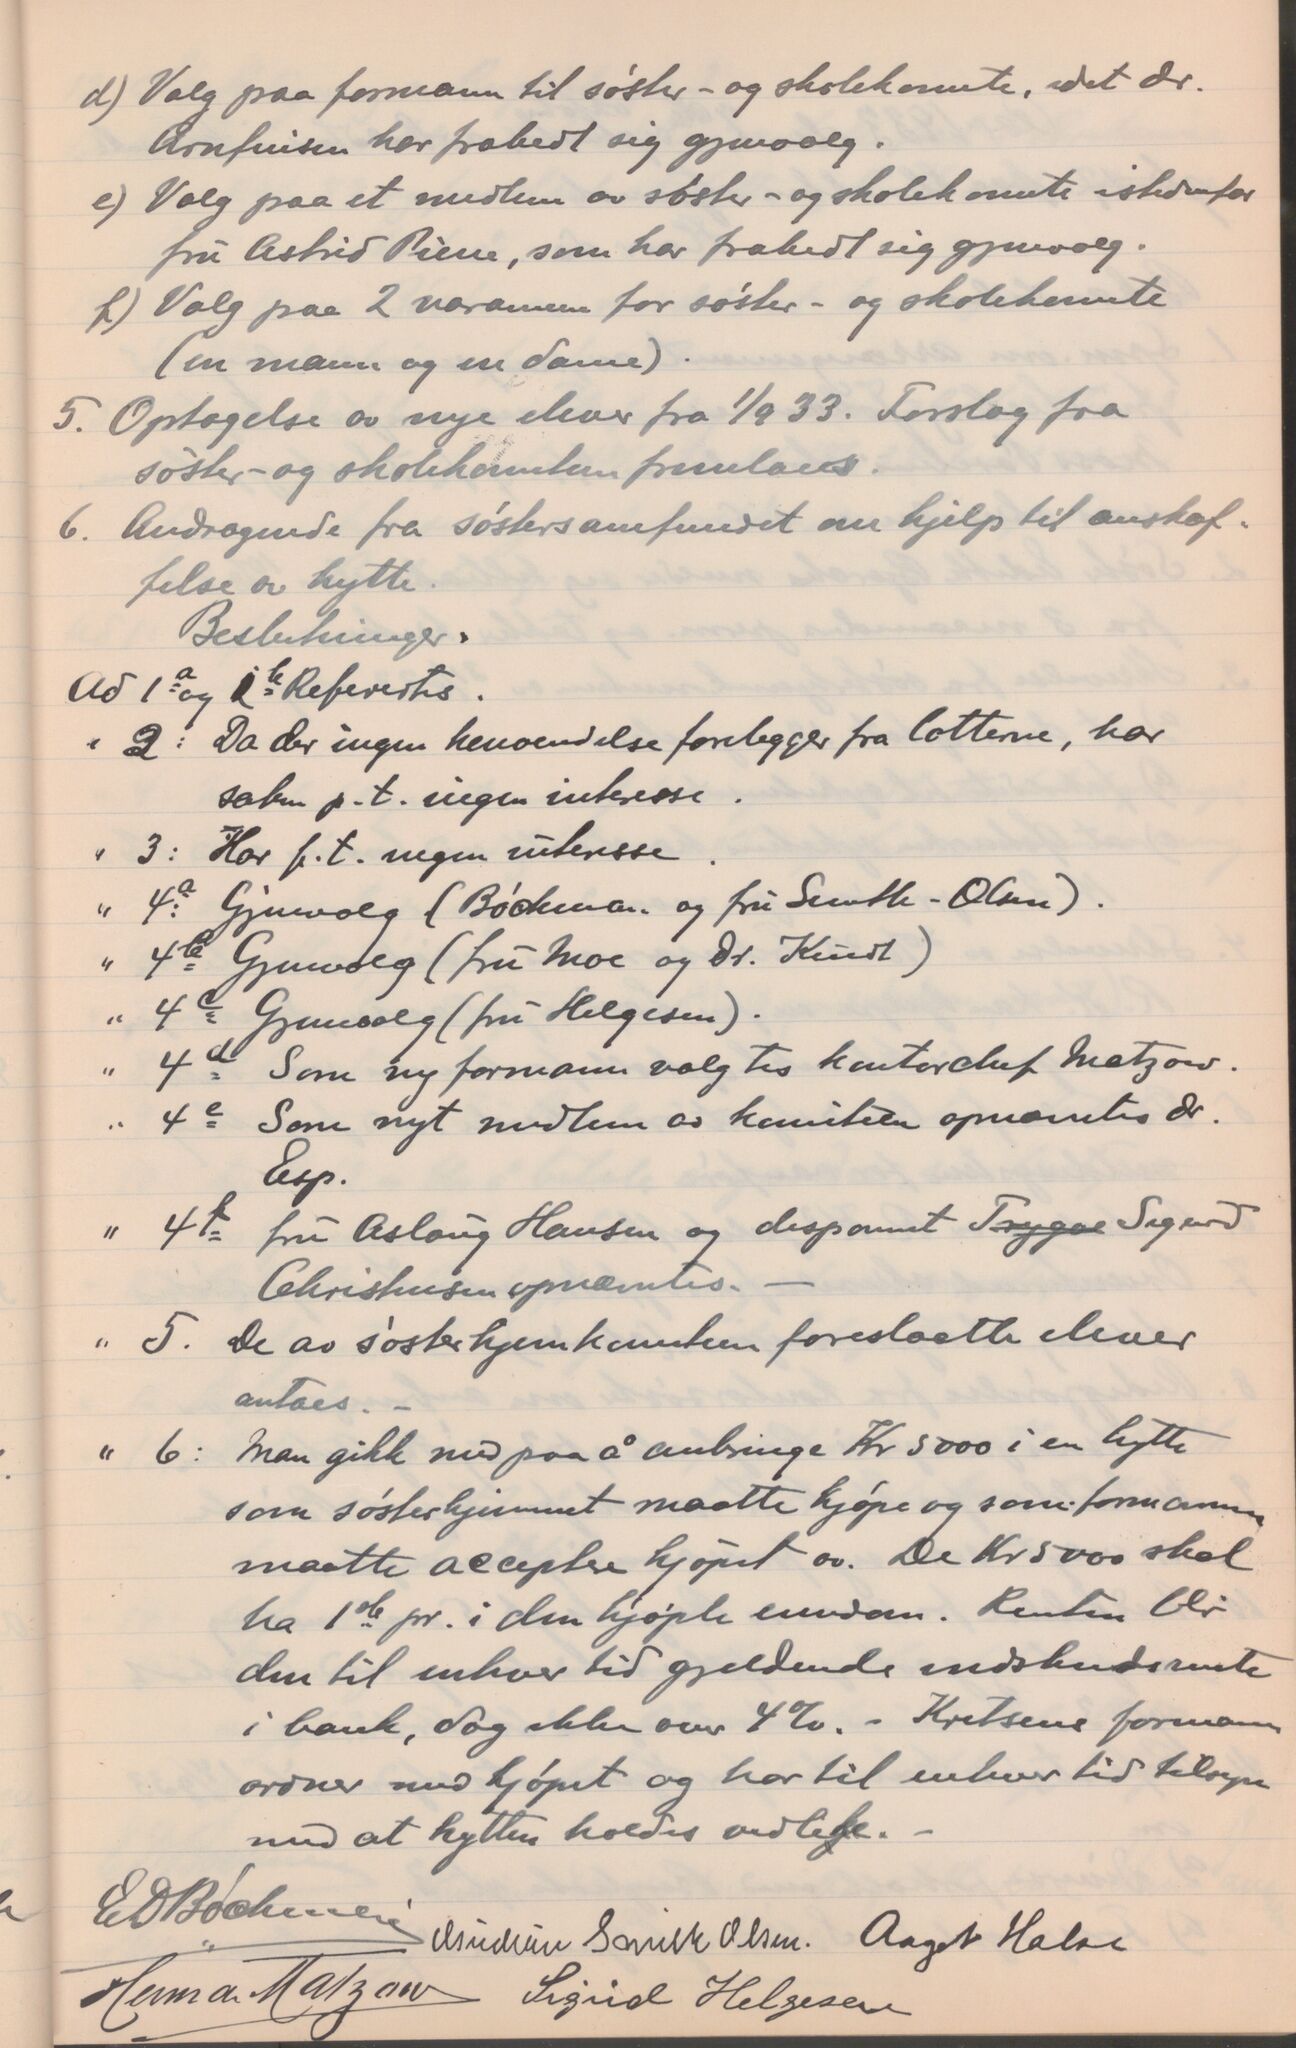 d) Valg paa formann til søster- og skolekomite, idet dr.
Arnfinsen har frabedt sig gjenvalg.
e) Valg paa et medlem av søster- og skolekomite istedenfor
fru Astrid Piene, som har frabedt sig gjenvalg.
f) Valg paa 2 varamenn for søster- og skolekomite
(en mann og en dame).
5. Optagelse av nye elever fra 1/9 33. Forslag fra
søster- og skolekomiteen fremlaees.
6. Andragende fra søstersamfundet om hjelp til anskaf-
felse av hytte.
Beslutninger.
Ad 1a og 1b Refereertes.
" 2: Da der ingen henvendelse forelegger fra lotterne, har
saken p.t. ingen interesse.
" 3: Har p.t. ingen interesse.
" 4a Gjenvalg (Bøckman og fru Smith-Olsen).
" 4b Gjenvalg (fru Moe og dr. Kindt)
" 4c Gjenvalg (fru Helgesen).
" 4d Som ny formann valgtes kontorchef Matzow.
" 4e Som nyt medlem av komiteen opnævntes dr.
Esp.
" 4f fru Aslaug Hansen og disponent Trygve Sigurd
Christensen opnævntes. —
" 5. De av søsterhjemkomiteen foreslaatte elever
antaes. -
" 6: Man gikk med paa å anbringe Kr 5000 i en hytte
som søsterhjemmet maatte kjøpe og som formannen
maatte acceptere kjøpet av. De Kr 5000 skal
ha 1ste pr. i den kjøpte eiendom. Renten blir
den til enhver tid gjeldende indskudsrente
i bank, dog ikke over 4%. - Kretsens formann
ordner med kjøpet og har til enhver tid tilsyn
med at hytten holdes vedlike. -
E D Bøckman
Smith Olsen. Aagot Halse
Herman Matzow Sigrid Helgesen